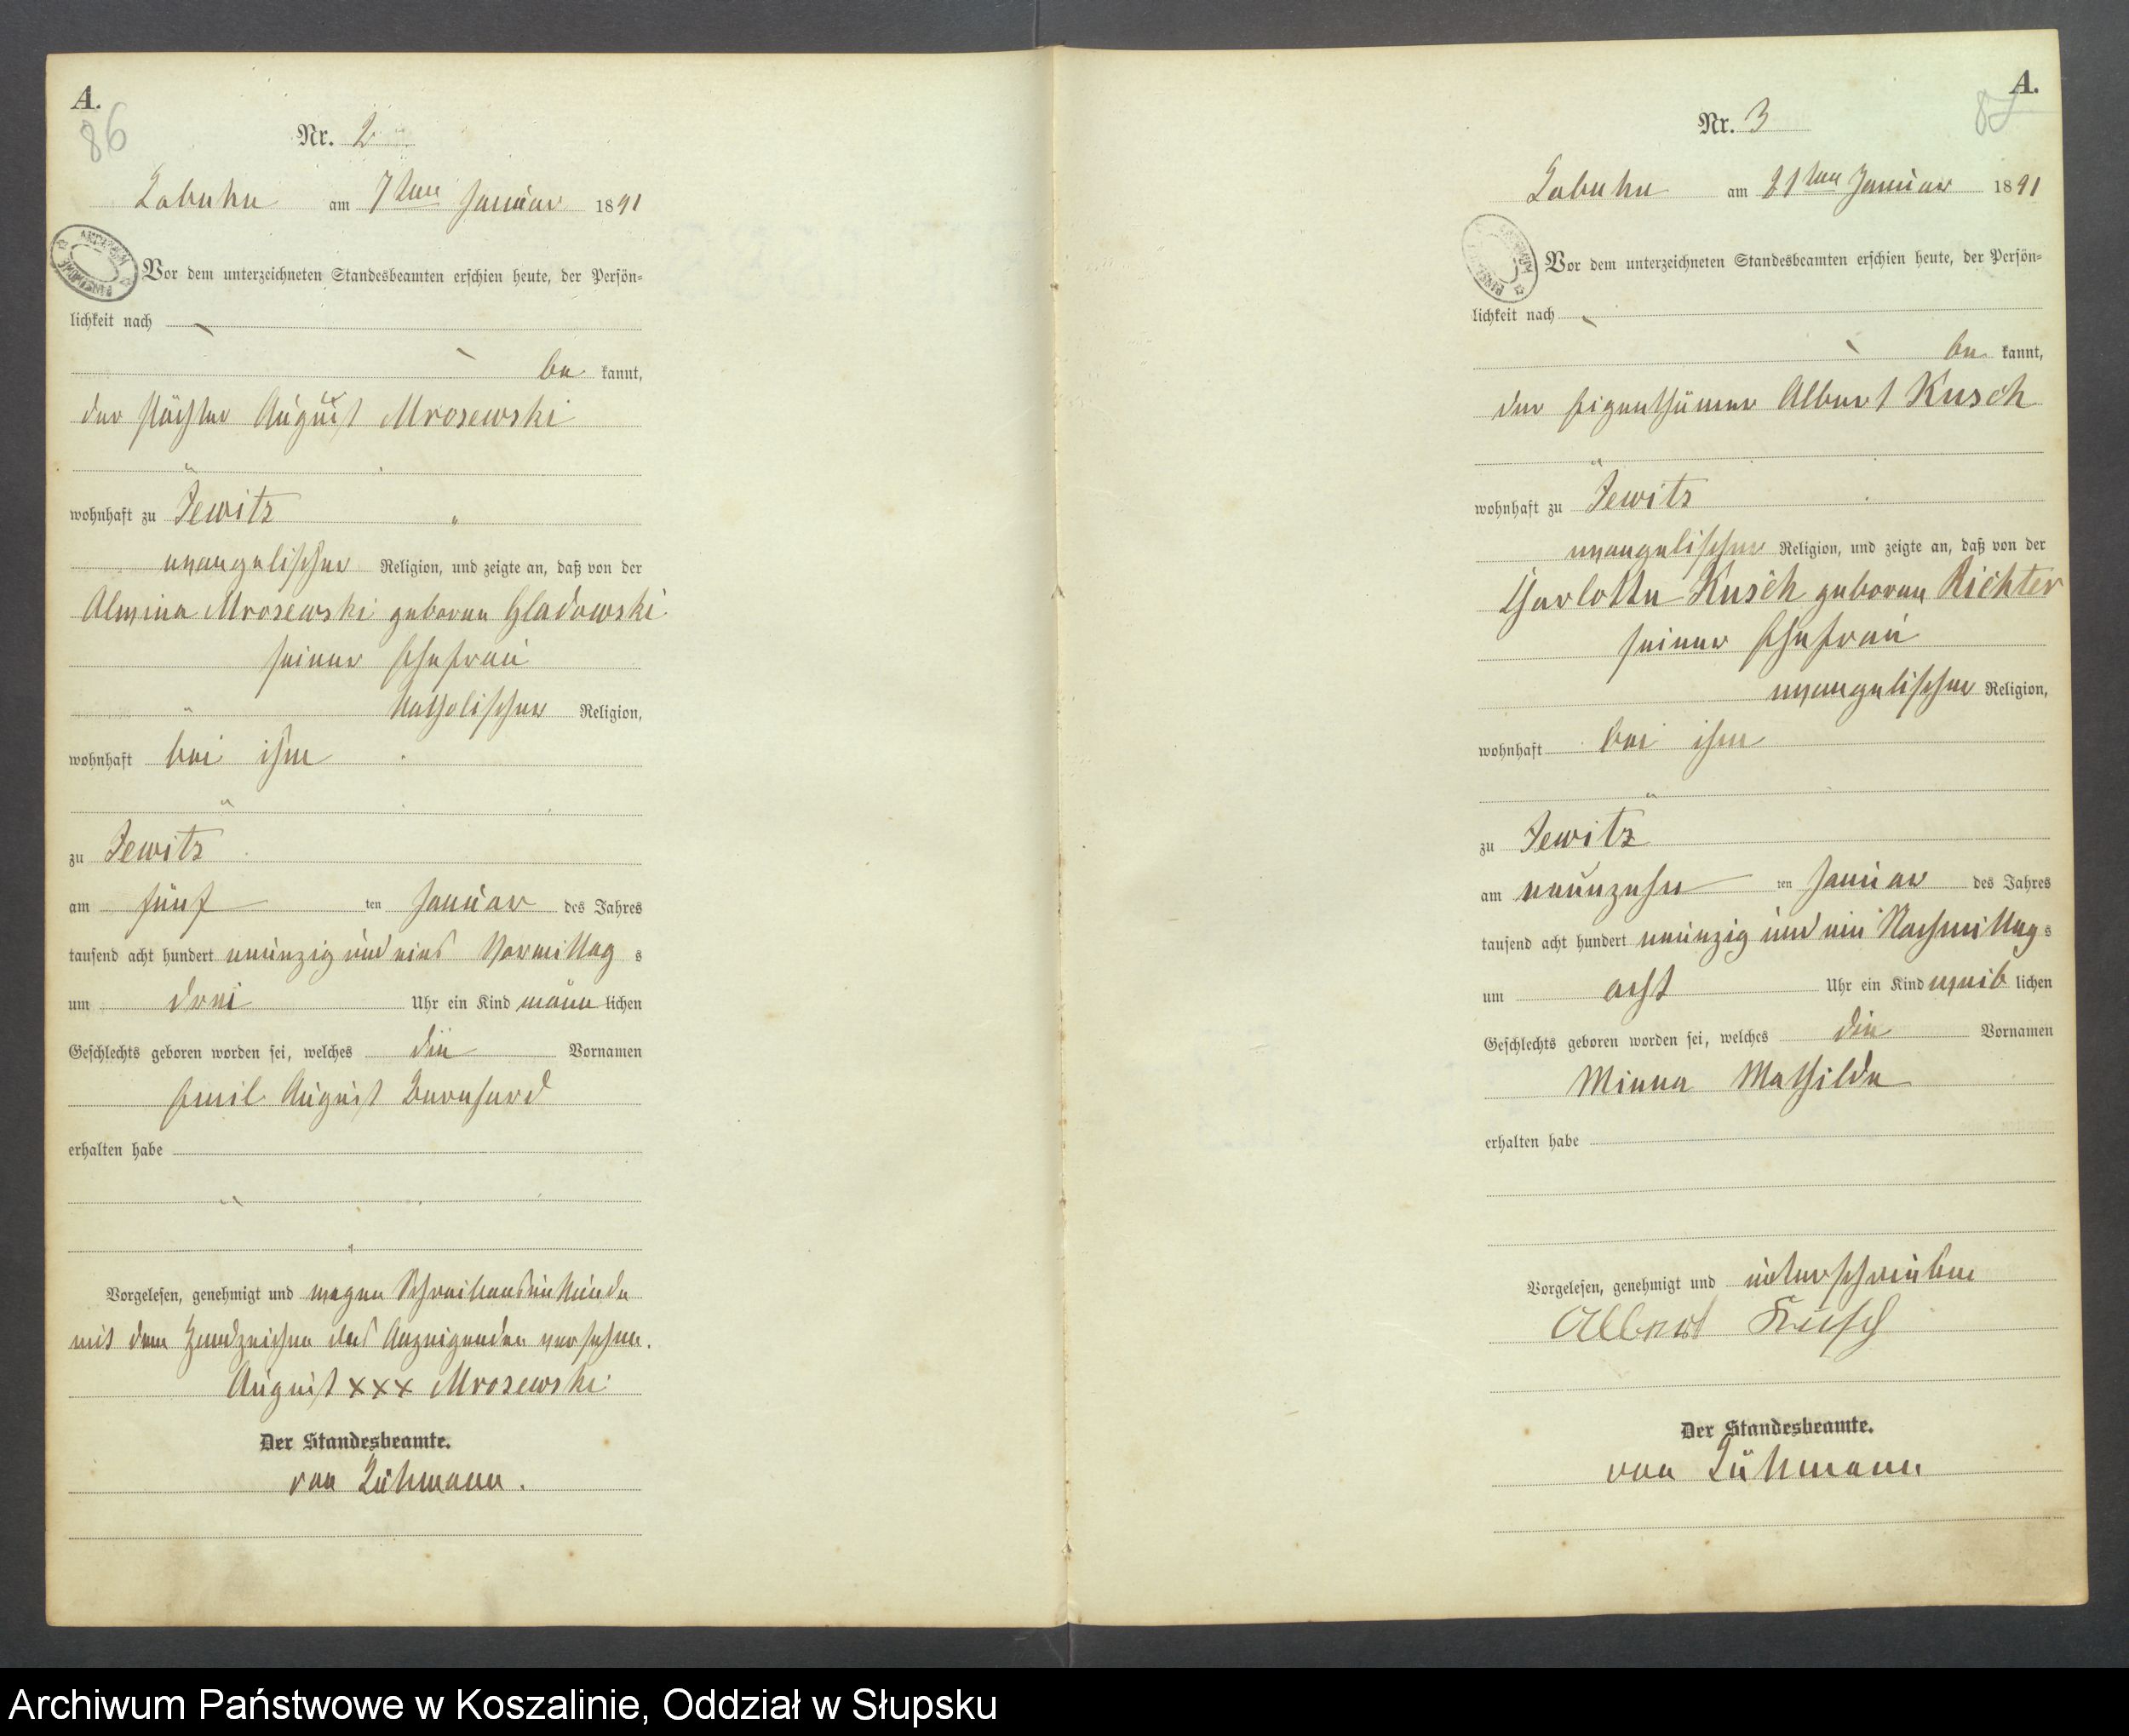 A.
86
Nr. 2
Labuhn am 7ten Januar 1891
Vor dem unterzeichneten Standesbeamten erschien heute, der Persön=
lichkeit nach
be kannt,
der Pächter August Mrosewski
wohnhaft zu Jewitz
evangelischer Religion, und zeigte an, daß von der
Alwina Mrosewski geboren Gladowski
seiner Ehefrau
katholischer Religion,
wohnhaft bei ihm
zu Jewitz
am fünf ten Januar des Jahres
tausend acht hundert neunzig und eins Vormittag s
um drei Uhr ein Kind männ lichen
Geschlechts geboren worden sei, welches die Vornamen
Emil August Bernhard
erhalten habe
Vorgelesen, genehmigt und wegen Schreibensunkunde
mit dem Handzeichen des Anzeigenden versehen.
August xxx Mrosewski
Der Standesbeamte.
von Lühmann.
A.
87
Nr. 3
Labuhn am 21ten Januar 1891
Vor dem unterzeichneten Standesbeamten erschien heute, der Persön=
lichkeit nach
be kannt,
der Eigenthümer Albert Kusch
wohnhaft zu Jewitz
evangelischer Religion, und zeigte an, daß von der
Charlotte Kusch geboren Richter
seiner Ehefrau
evangelischer Religion,
wohnhaft bei ihm
zu Jewitz
am neunzehn ten Januar des Jahres
tausend acht hundert neunzig und ein Nachmittag s
um acht Uhr ein Kind weib lichen
Geschlechts geboren worden sei, welches die Vornamen
Minna Mathilde
erhalten habe
Vorgelesen, genehmigt und unterschrieben
Albert Kusch
Der Standesbeamte.
von Lühmann
Archiwum Państwowe w Koszalinie, Oddział w Słupsku